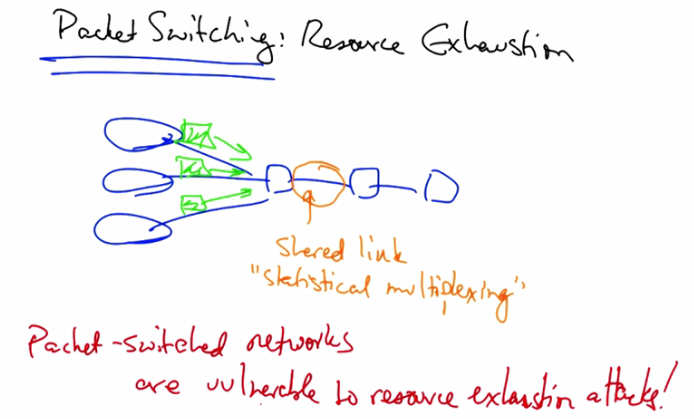 Packet Switching: Resource Exhaustion
Shared link
"statistical multiplexing"
Packet-switched networks
are vulnerable to resource exhaustion attacks!